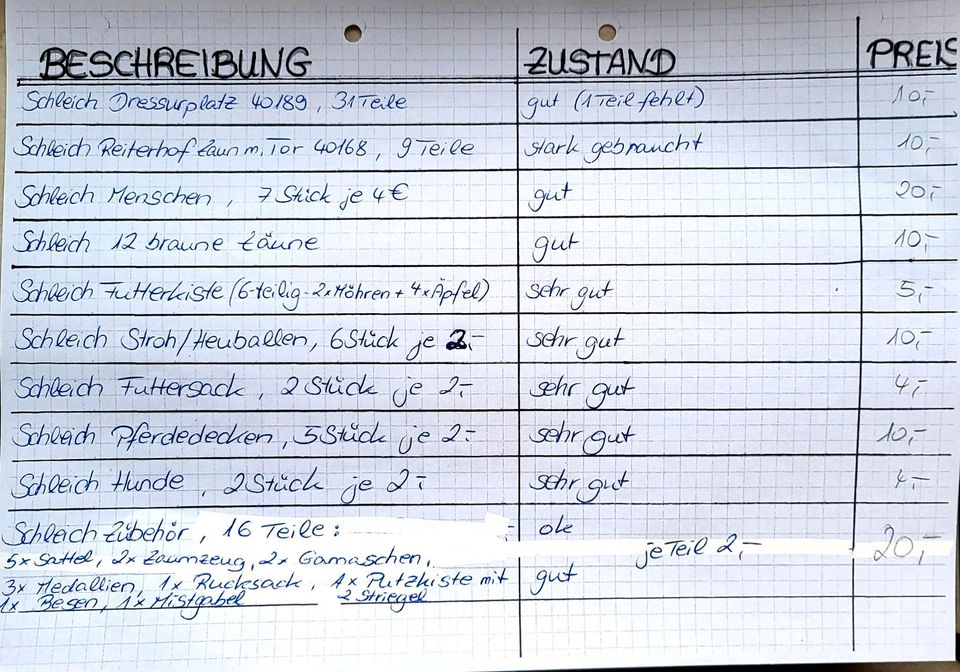 BESCHREIBUNG ZUSTAND PREIS
Schleich Dressurplatz 40189, 31 Teile gut (1 Teil fehlt) 10,-
Schleich Reiterhof Zaun m. Tor 40168, 9 Teile stark gebraucht 10,-
Schleich Menschen, 7 Stück je 4€ gut 20,-
Schleich 12 braune Zäune gut 10,-
Schleich Futterkiste (6-teilig - 2x Möhren + 4x Äpfel) sehr gut 5,-
Schleich Stroh/Heuballen, 6 Stück je 2,- sehr gut 10,-
Schleich Futtersack, 2 Stück je 2,- sehr gut 4,-
Schleich Pferdedecken, 5 Stück je 2,- sehr gut 10,-
Schleich Hunde, 2 Stück je 2,- sehr gut 4,-
Schleich Zubehör, 16 Teile: ok
je Teil 2,- 20,-
5x Sattel, 2x Zaumzeug, 2x Gamaschen,
3x Medallien, 1x Rucksack, 1x Putzkiste mit gut
1x Besen, 1x Mistgabel 2 Striegel